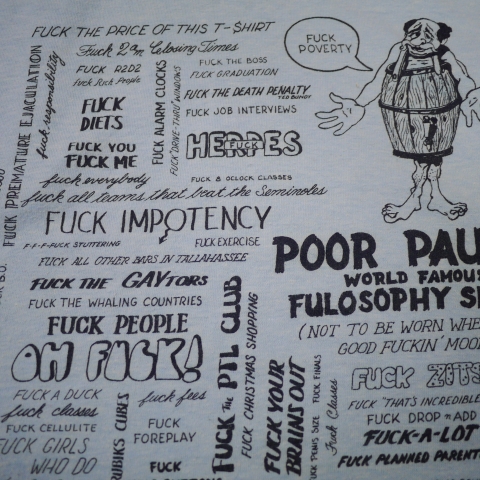 FUCK THE PRICE OF THIS T-SHIRT
Fuck 2am Closing Times
FUCK R2D2
Fuck Rock People
FUCK DIETS
FUCK YOU
FUCK ME
fuck everybody
fuck all teams that beat the Seminoles
FUCK PREMATURE EJACULATION
fuck responsibility
FUCK ALARM CLOCKS
FUCK "DRIVE-THRU" WINDOWS
FUCK THE BOSS
FUCK GRADUATION
FUCK THE DEATH PENALTY
TED BUNDY
FUCK JOB INTERVIEWS
HERPES
FUCK
FUCK 8 OCLOCK CLASSES
FUCK POVERTY
FUCK IMPOTENCY
F-F-F-FUCK STUTTERING
FUCK EXERCISE
FUCK ALL OTHER BARS IN TALLAHASSEE
FUCK THE GAYTORS
FUCK THE WHALING COUNTRIES
FUCK PEOPLE
OH FUCK!
FUCK A DUCK
fuck classes
FUCK CELLULITE
FUCK GIRLS
WHO DO
RUBIKS CUBES
fuck fees
FUCK
FOREPLAY
FUCK
FUCK THE PTL CLUB
FUCK CHRISTMAS SHOPPING
FUCK YOUR
BRAINS OUT
FUCK PENIS SIZE
FUCK FINALS
Fuck Classes
POOR PAU
WORLD FAMOU
FULOSOPHY S
(NOT TO BE WORN WHE
GOOD FUCKIN' MOO
FUCK ZITS
FUCK "THAT'S INCREDIBLE
FUCK DROP & ADD
FUCK-A-LOT
FUCK PLANNED PARENT